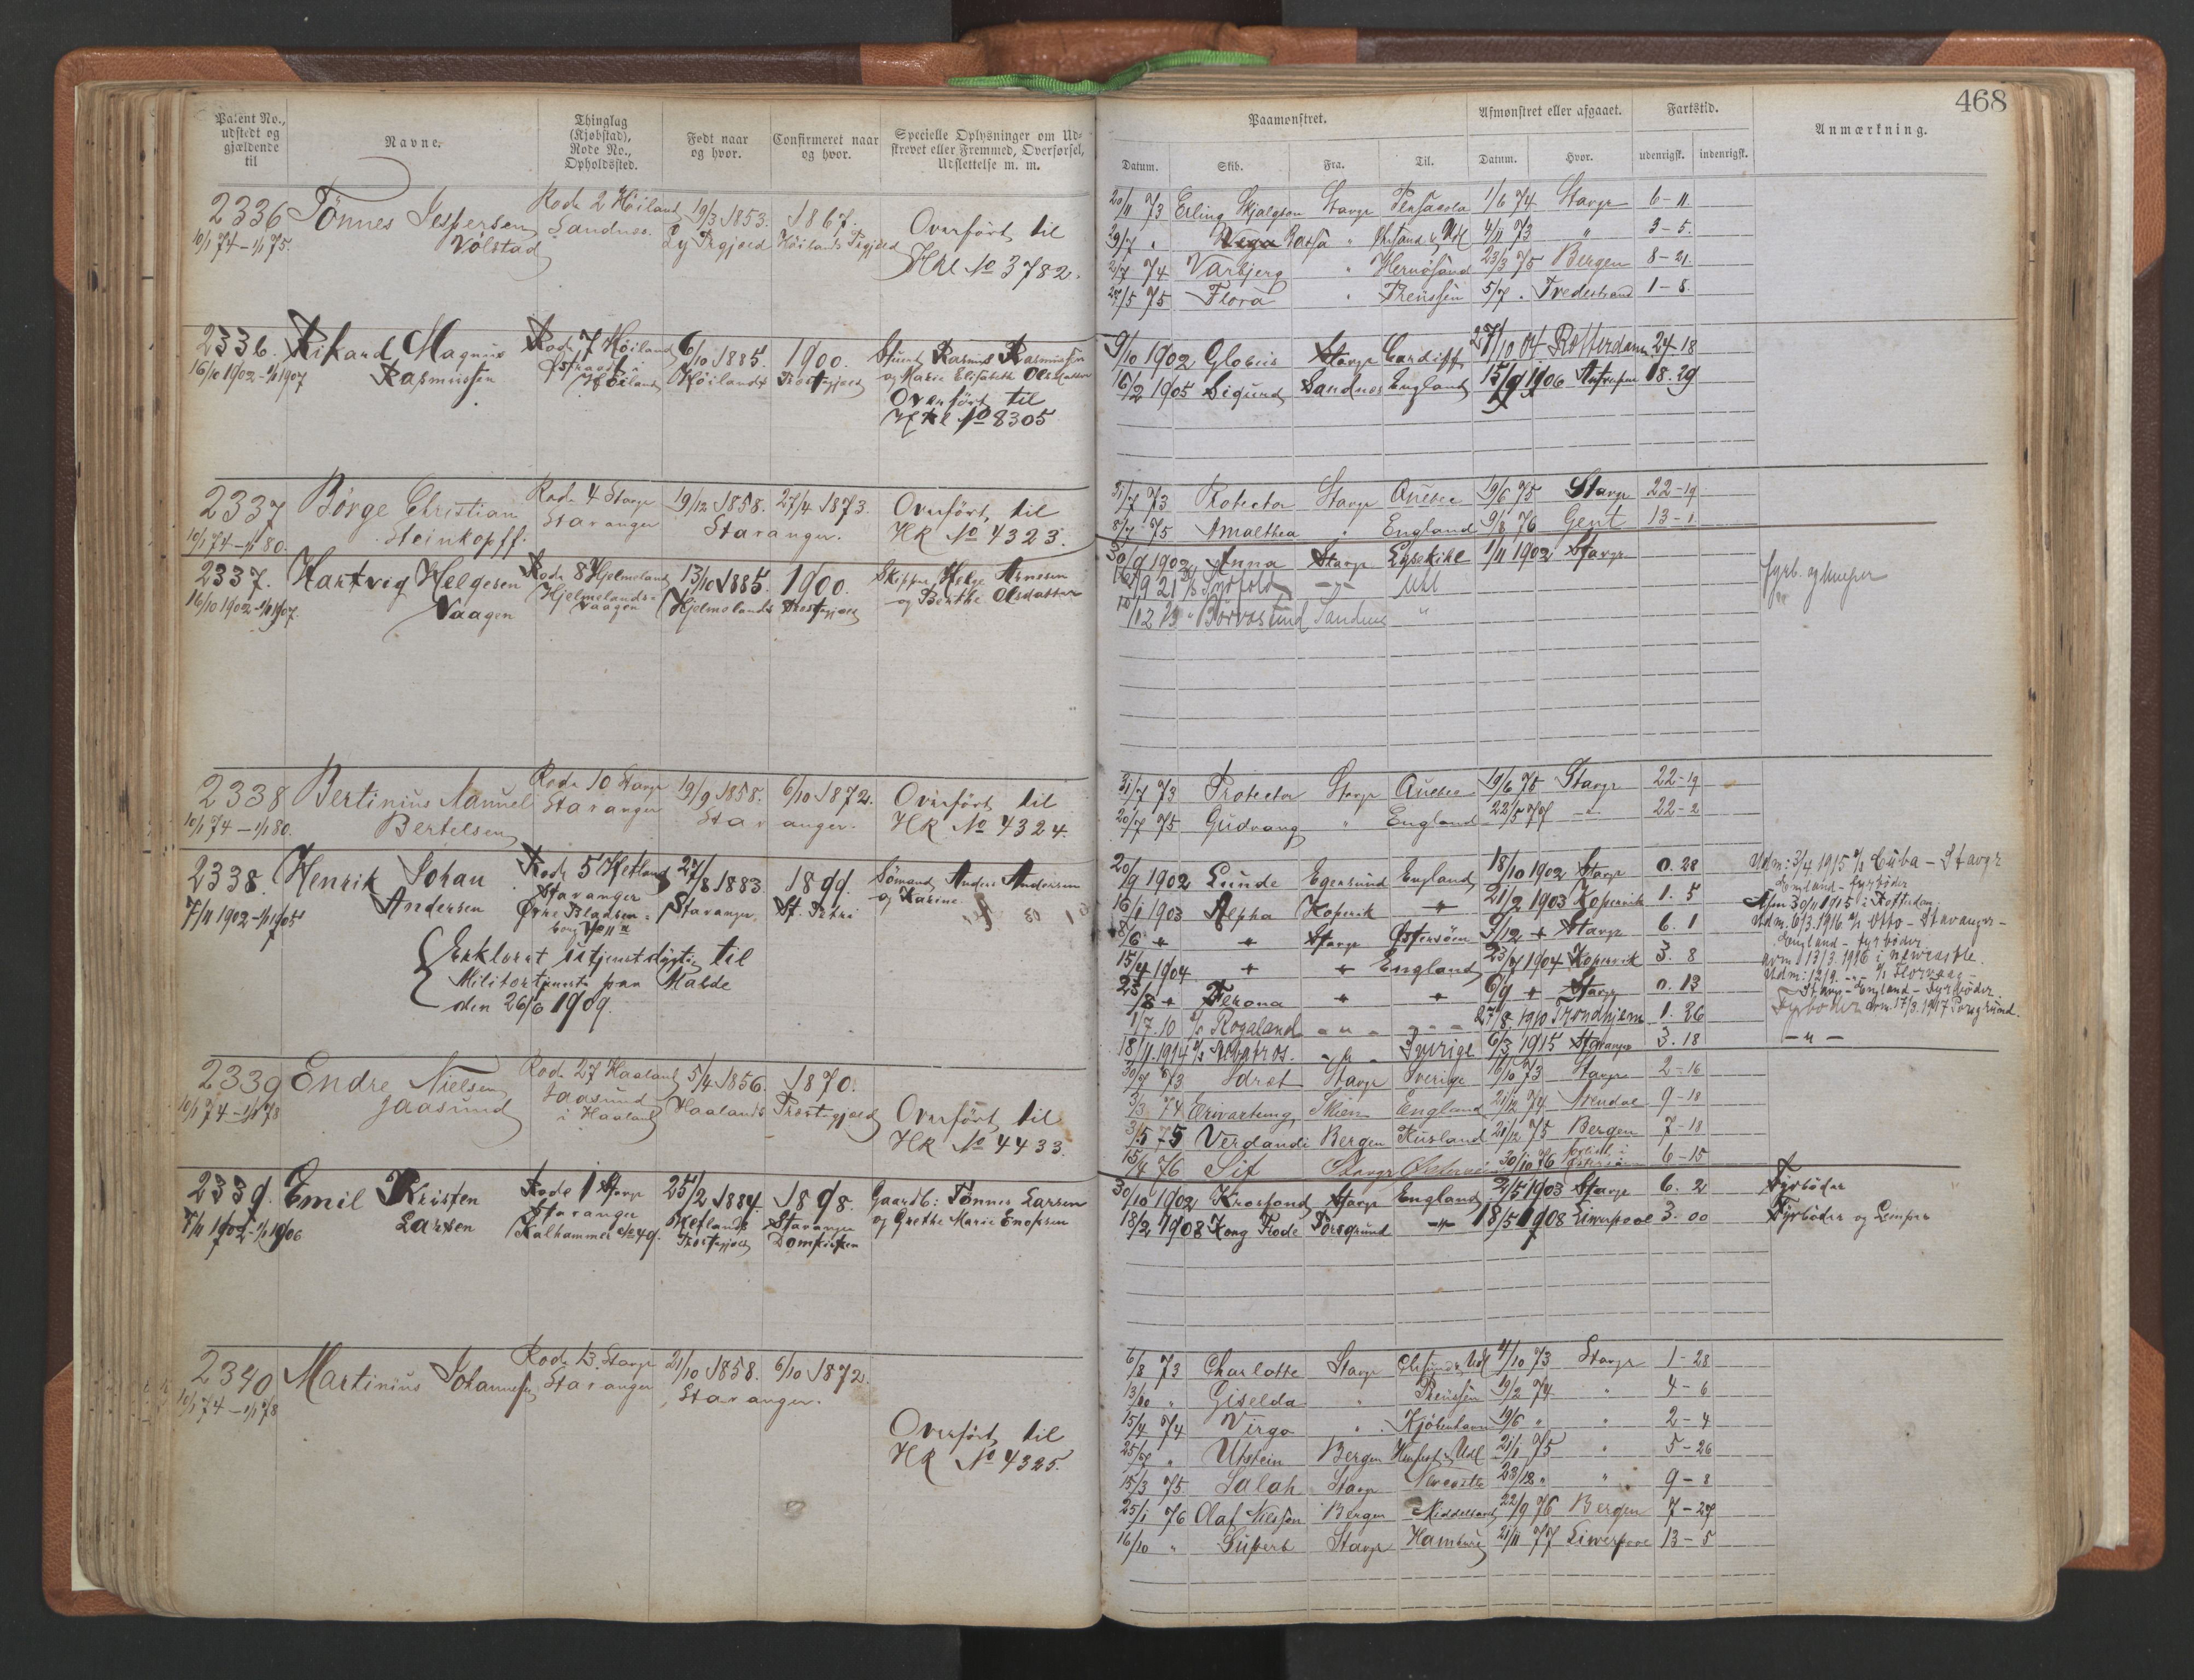 468
Patent No., udstedt og gjældende til
Navne.
Thinglag (Kjøbstad), Rode No., Opholdssted.
Født naar og hvor.
Confirmeret naar og hvor.
Specielle Oplysninger om Udskrevet eller Fremmed, Overførsel, Udslettelse m. m.
Paamønstret.
Afmønstret eller afgaaet.
Fartstid.
Anmærkning.
Datum.
Skib.
Fra.
Til.
Datum.
Hvor.
udenrigsk.
indenrigsk.
2336 Tönnes Jespersen Rode 2 Höiland 19/3 1853. 1867.
10/1 74 – 1/1 75. Völstad Sandnes. Ly Prgjæld Höilands Prgjæld
Overført til
HRl No 3782.
20/11 73 Erling Skjalgson Stavgr Pensacola 1/6 74 Stavgr 6 – 11
29/7 " Ratsa " 4/11 73 " 3 – 5.
2/7 74 Varbjerg " Hernösand 23/3 75 Bergen 8 – 21.
28/5 75 Flora " Preussen 5/7 " Tvedestrand 1 – 8.
2336. Rikard Magnus Rode 7 Höiland 6/10 1885. 1900. Rasmus Rasmussen
16/10 1902 – 1/1 1907 Rasmussen Höiland Höilands Prestegjæld og Marie Elisabeth Olsdatter
Overført til
HRl No 8305
9/10 1902 Globus Stavgr Cardiff 27/10 04 Rotterdam 24 – 18
16/2 1905 Sigurd Sandnes England 15/9 1906 18. 29
2337 Börge Christian Rode 4 Stavgr 19/12 1858. 27/4 1873. Overført til
10/1 74 – 1/1 80. Steinkopff. Stavanger Stavanger. HR No 4323.
31/7 73 Protector Stavgr Quebec 19/6 75 Stavgr 22 – 19
5/7 75 Amalthea " England 9/8 76 Gent 13 – 1
2337. Hartvig Helgesen Rode 8 Hjelmeland 13/10 1885. 1900. Skipper Helge Arnesen
16/10 1902 – 1/1 1907. Vaagen Hjelmelands- Vaagen Hjelmelands Prestegjæld og Berthe Olsdatter
30/9 1902 Anna Stavgr Lysekihl 1/11 1902 Stavgr
2338 Bertinius Nanuel Rode 10 Stavgr 19/9 1858. 6/10 1872. Overført til
10/1 74 – 1/1 80. Bertelsen Stavanger Stavanger. HR No 4324.
31/7 73 Protector Stavgr Quebec 19/6 75 Stavgr 22 – 19
20/7 75 Gudvang " England 22/5 77 22 – 2
2338. Henrik Johan Rode 5 Hetland 27/8 1883. 1899. Sömand Anders Andersen
7/11 1902 – 1/1 1905 Andersen Stavanger Stavanger. St. Petri og Karine
Øvre Bladsen
Erklæret utjenstdygtig til
Militærtjeneste paa Malde
den 26/6 1909.
20/9 1902 Lunde Egersund England 18/10 1902 Stavgr 0. 28
16/1 1903 Alpha Kopervik + 21/2 1903 Kopervik 1. 5
8/6 + + Stavgr Østersöen 9/12 + Stavgr 6. 1
15/4 1904 + + England 23/7 1904 Kopervik 3. 8
23/8 + Verona + + 6/9 + Stavgr 0. 13
1/7. 10 s/s Rogaland – " – 27/8 1910 Trondhjem 1. 26
18/11. 1914 s/s Albatros. – " – Sverige 6/3 1915 Stavanger 3. 18
Udm: 3/4 1915 s/s Cuba – Stavgr
England – fyrböder
Afm 30/11 1915 i Rotterdam
Udm. 6/3. 1916. s/s Otto – Stavanger –
England – fyrböder
avm. 13/3. 1916 i Newcastle.
Stavgr – England – Fyrböder
Fyrböder avm. 17/3. 1917 Porsgrund.
– " –
2339 Endre Nielsen Rode 27 Haaland 5/4 1856. 1870.
10/1 74 – 1/1 78 Jaasund Jaasund i Haaland Haalands Prestegjæld Overført til
HR No 4433.
30/7 73 Idræt Stavgr Sverige 16/10 73 Stavgr 2 – 16
3/3 74 Erwartung Skien England 21/12 74 Arendal 9 – 18
3/5 75 Verdandi Bergen Rusland 21/12 75 Bergen 7 – 18
15/4 76 Sif Stavgr 30/10 76 6 – 15
2339. Emil Kristen Rode 1 Stavgr 25/2 1884. 1898. Gaardb: Tönnes Larsen
7/11 1902 – 1/1 1906 Larsen Stavanger Hetlands Stavanger og Grethe Marie Enoksen
Kalhammer No 49. Prestegjæld Domkirken
30/10 1902 Krosfond Stavgr England 2/5 1903 Stavgr 6. 2 Fyrböder
18/2 1908 Kong Frode Porsgrund – " – 18/5 1908 Liverpool 3. 00 Fyrböder og Lemper
2340 Martinius Johannesen Rode 13. Stavgr 21/10 1858. 6/10 1872.
10/1 74 – 1/1 78 Stavanger Stavanger.
Overført til
HR No 4325.
6/8 73 Charlotte Stavgr 4/10 73 Stavgr 1 – 28
13/10 " Giselda " Preussen 19/2 74 " 4 – 6
15/4 74 Virgo " Kjöbenhavn 19/6 " " 2 – 4
25/7 " Utstein Bergen 21/1 75 " 5 – 26
15/3 75 Salah Stavgr 23/12 " " 9 – 8
25/1 76 Olaf Nilssön Bergen Middelhavet 22/9 76 Bergen 7 – 27
16/10 " Superb Stavgr Hamburg 21/11 77 Liverpool 13 – 5